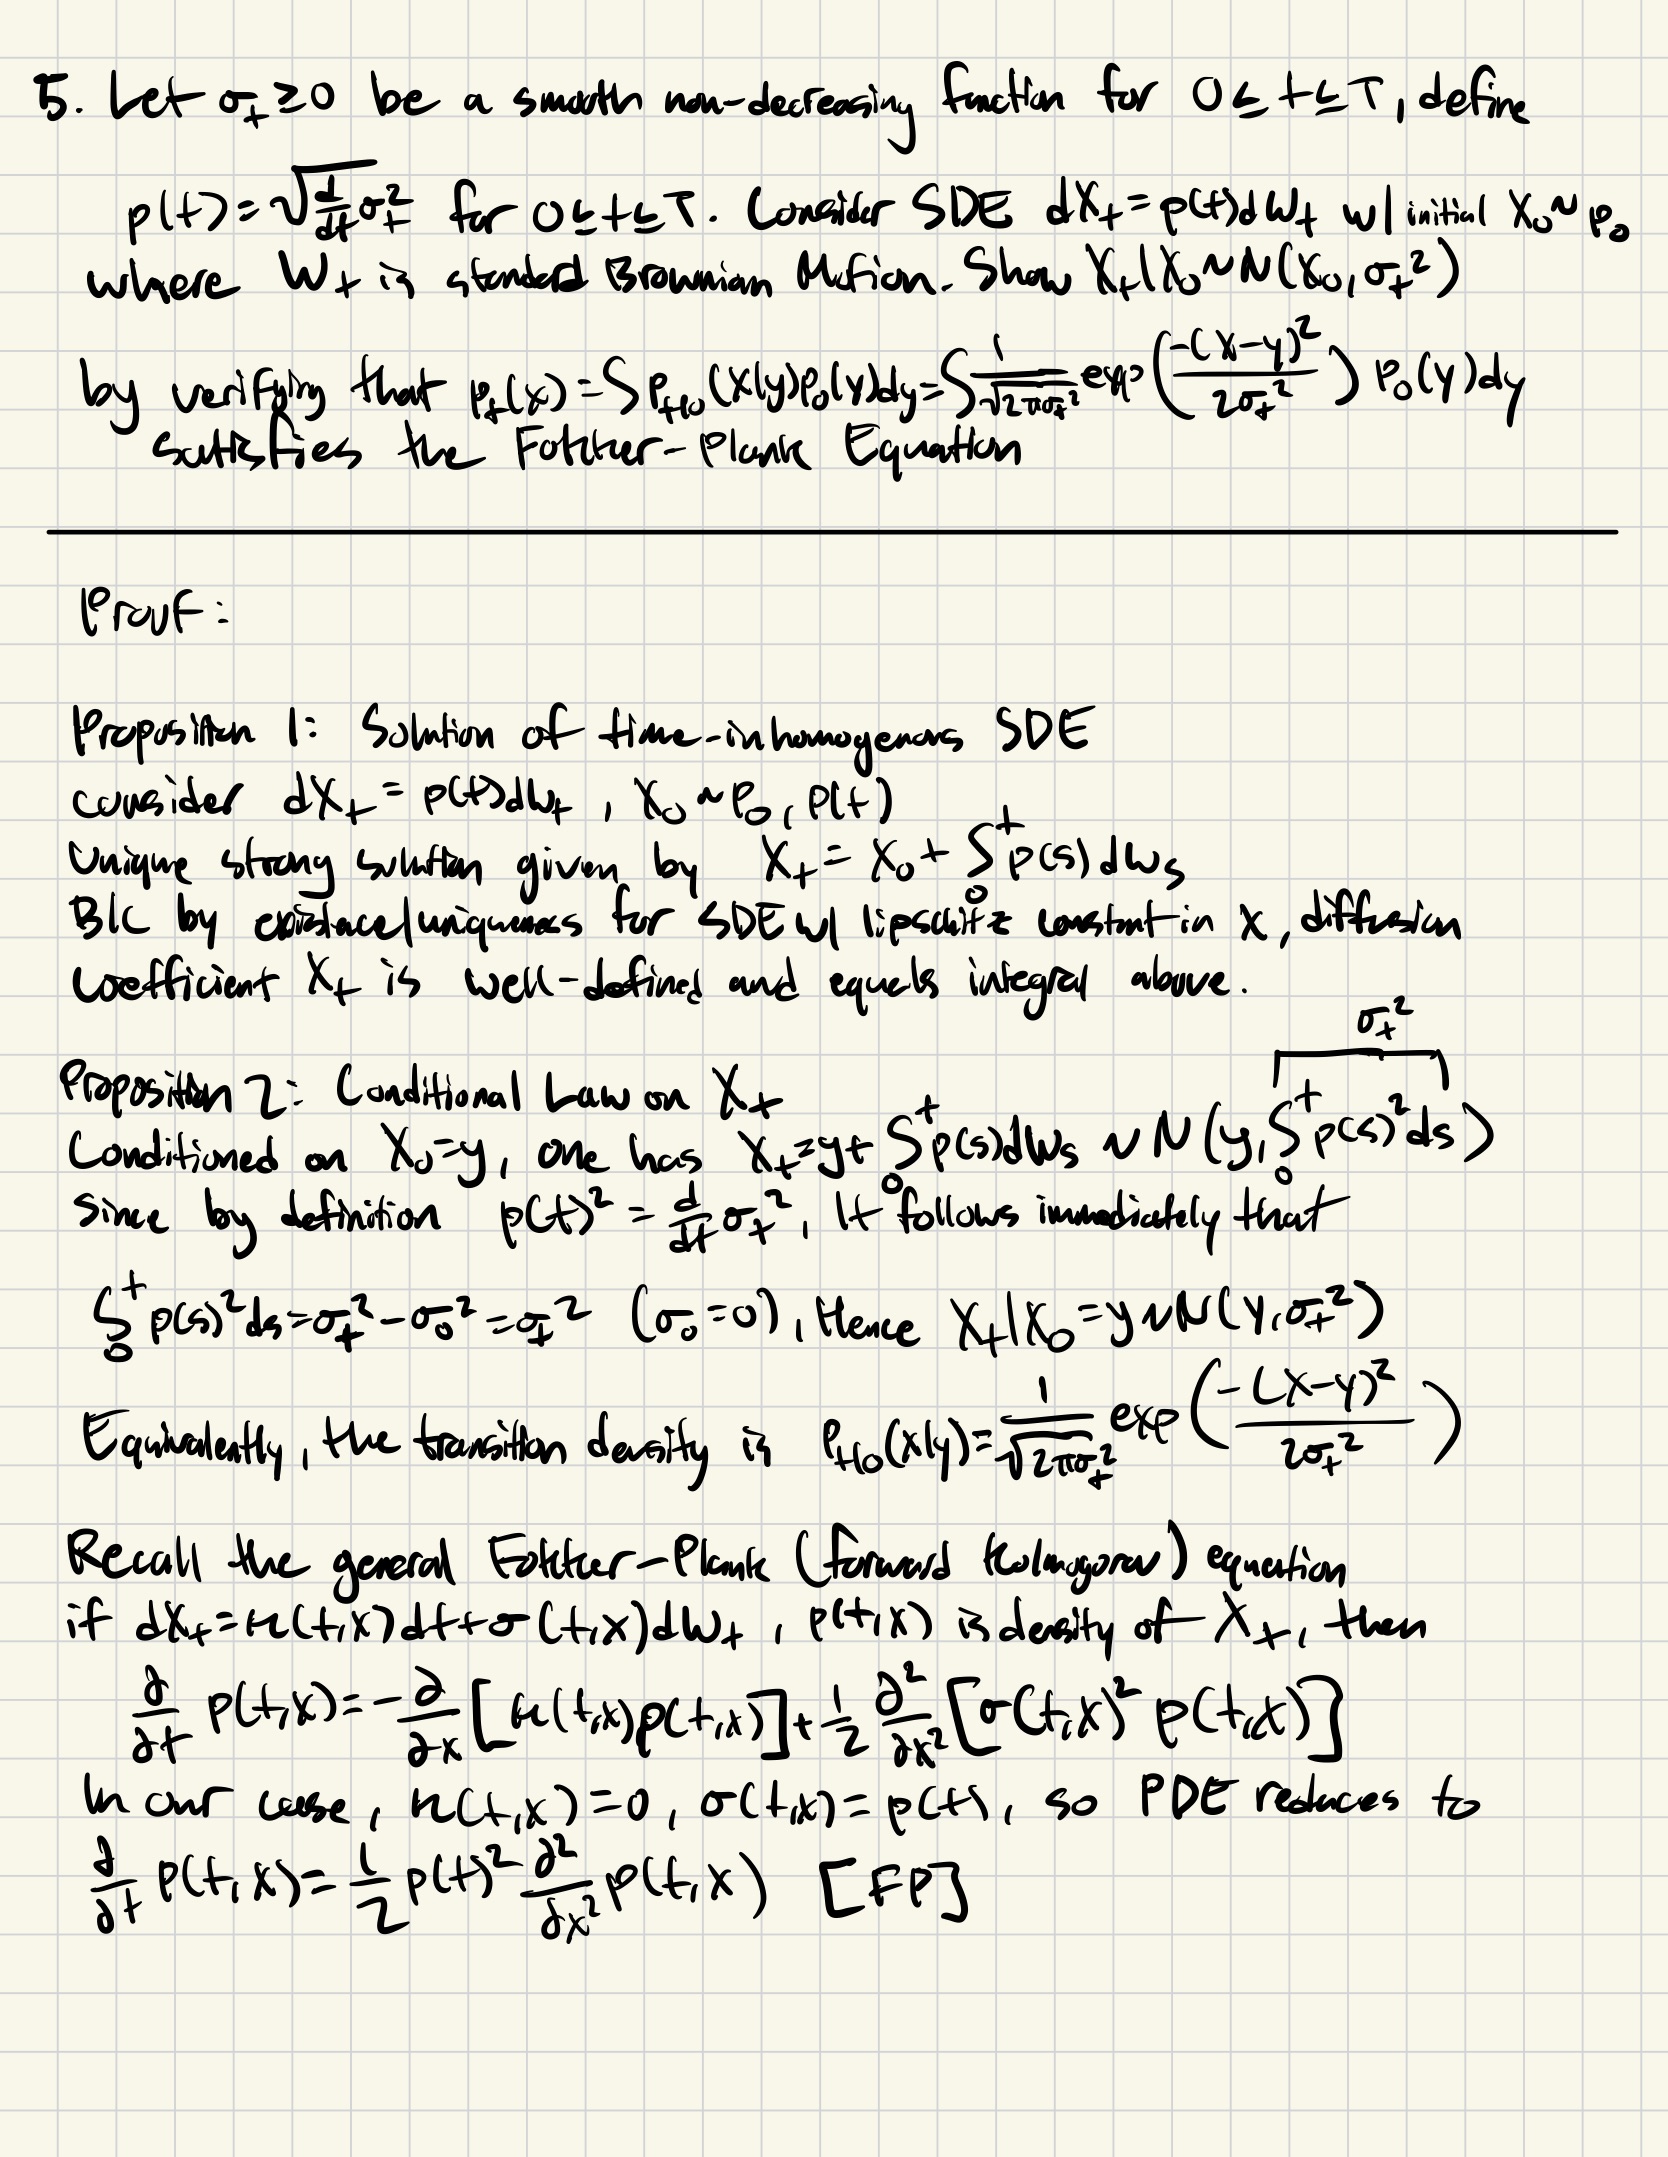 5. Let σ_t ≥ 0 be a smooth non-decreasing function for 0 ≤ t ≤ T, define
p(t) = √(d/dt σ_t²) for 0 ≤ t ≤ T. Consider SDE dX_t = p(t)dW_t w/ initial X_0 ~ p_0
where W_t is standard Brownian Motion. Show X_t|X_0 ~ N(X_0, σ_t²)
by verifying that p_t(x) = ∫ p_{t|0}(x|y)p_0(y)dy = ∫ 1/√(2πσ_t²) exp(-(x-y)²/2σ_t²) p_0(y)dy
satisfies the Fokker-Plank Equation
Proof:
Proposition 1: Solution of time-inhomogenous SDE
consider dX_t = p(t)dW_t, X_0 ~ p_0, p(t)
Unique strong solution given by X_t = X_0 + ∫_0^t p(s)dW_s
B/C by existence/uniqueness for SDE w/ lipschitz constant in x, diffusion
coefficient X_t is well-defined and equals integral above.
σ_t²
Proposition 2: Conditional Law on X_t
Conditioned on X_0 = y, one has X_t = y + ∫_0^t p(s)dW_s ~ N(y, ∫_0^t p(s)²ds)
since by definition p(t)² = d/dt σ_t², It follows immediately that
∫_0^t p(s)²ds = σ_t² - σ_0² = σ_t² (σ_0 = 0), Hence X_t|X_0 = y ~ N(y, σ_t²)
Equivalently, the transition density is p_{t|0}(x|y) = 1/√(2πσ_t²) exp(-(x-y)²/2σ_t²)
Recall the general Fokker-Plank (forward Kolmogorov) equation
if dX_t = μ(t,x)dt + σ(t,x)dW_t, p(t,x) is density of X_t, then
∂/∂t p(t,x) = -∂/∂x [μ(t,x)p(t,x)] + 1/2 ∂²/∂x² [σ(t,x)² p(t,x)]
In our case, μ(t,x) = 0, σ(t,x) = p(t), so PDE reduces to
∂/∂t p(t,x) = 1/2 p(t)² ∂²/∂x² p(t,x) [FP]